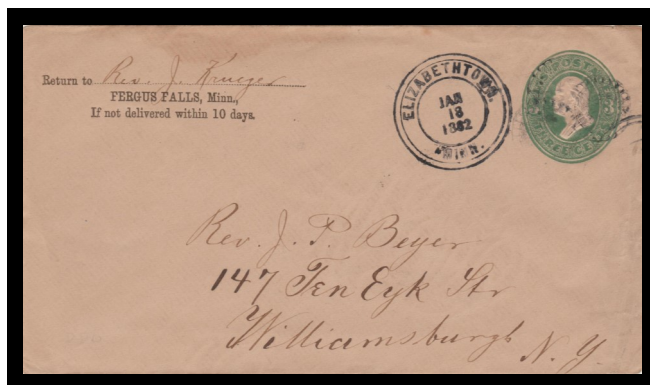 Return to Rev. J. Krueger
FERGUS FALLS, Minn.,
If not delivered within 10 days.
ELIZABETHTOWN.
JAN
18
1882
MINN.
U.S. POSTAGE
THREE CENTS
Rev. J. P. Beyer
147 Ten Eyk Str
Williamsburgh
N. Y.